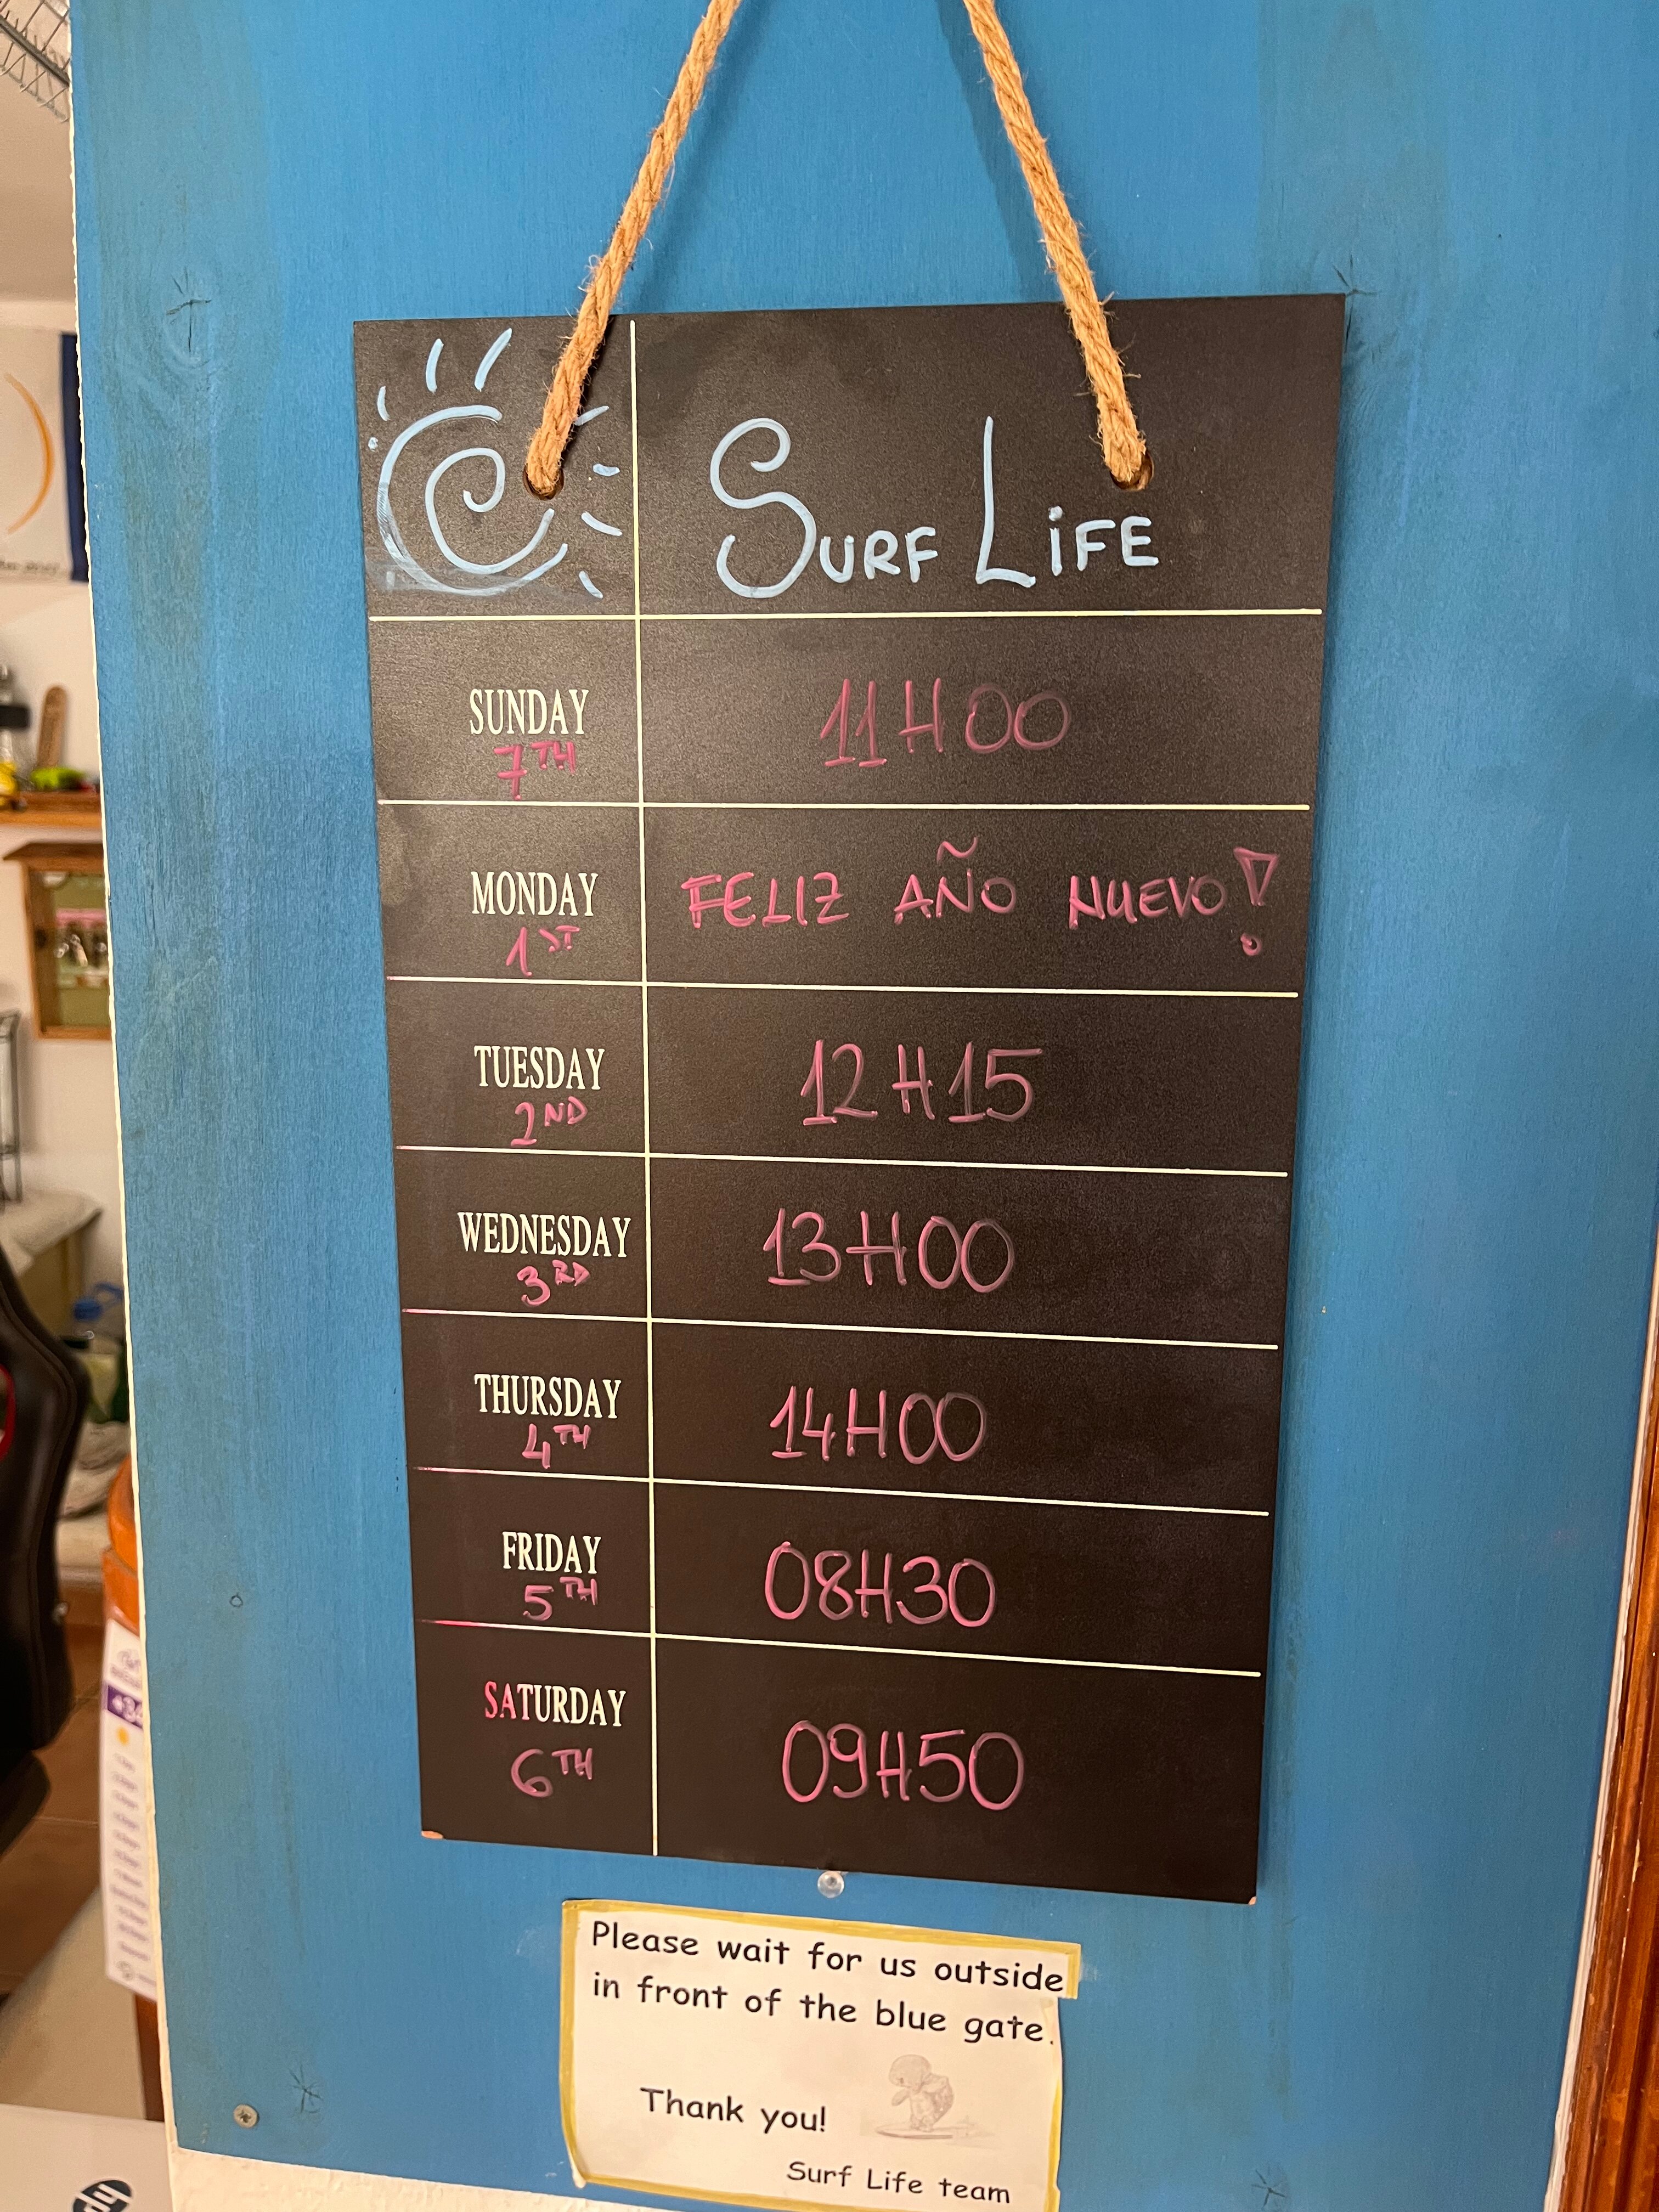 SURF LiFE
SUNDAY 11H00
7TH
MONDAY FELIZ AÑO NUEVO!
1ST
TUESDAY 12H15
2ND
WEDNESDAY 13H00
3RD
THURSDAY 14H00
4TH
FRIDAY 08H30
5TH
SATURDAY 09H50
6TH
Please wait for us outside
in front of the blue gate.
Thank you!
Surf Life team
hp